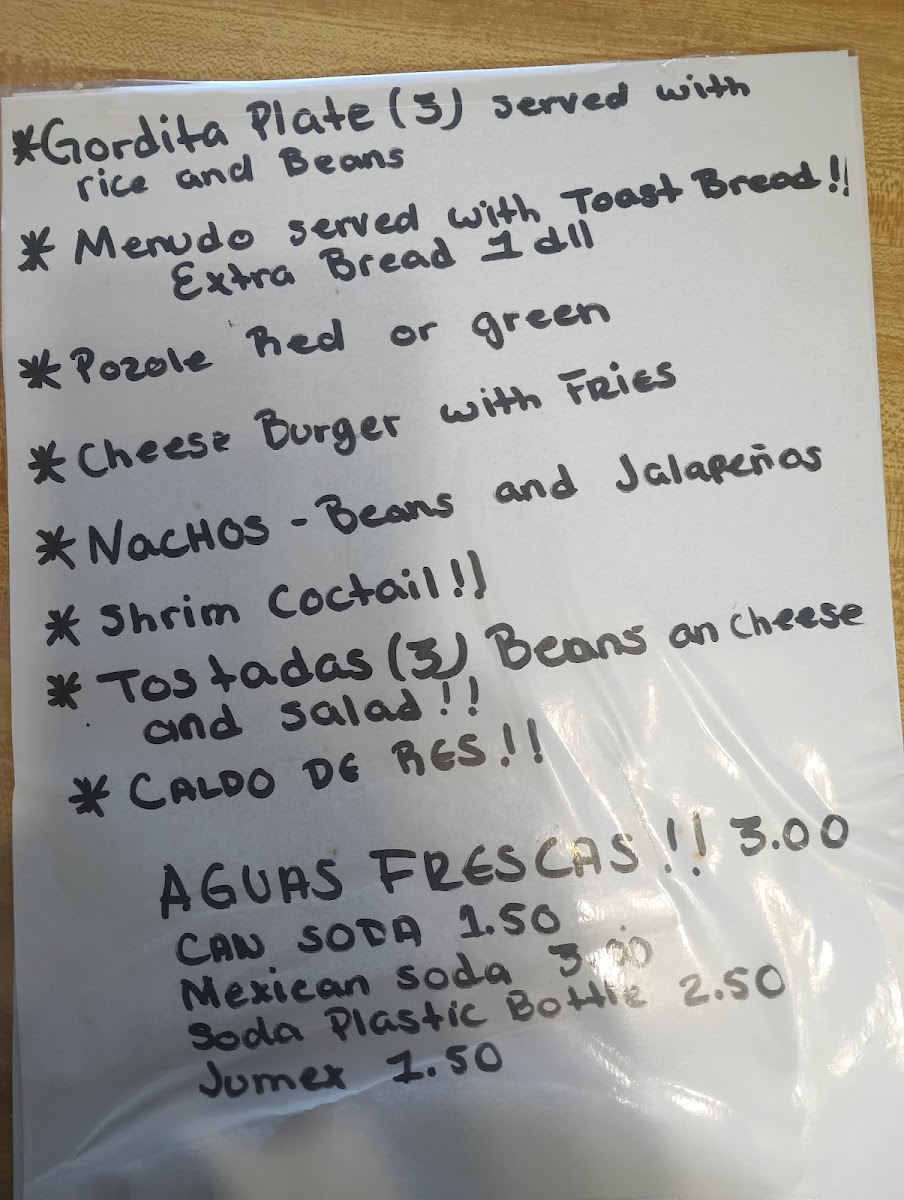 *Gordita Plate (3) served with
rice and Beans
* Menudo served with Toast Bread!!
Extra Bread 1 dll
* Pozole Red or green
* Cheese Burger with FRIES
* NacHos - Beans and Jalapeños
* Shrim Coctail!!
* Tostadas (3) Beans an cheese
and salad!!
* CALDO DE RES!!
AGUAS FRESCAS!! 3.00
CAN SODA 1.50
Mexican soda 3.00
Soda Plastic Bottle 2.50
Jumex 1.50